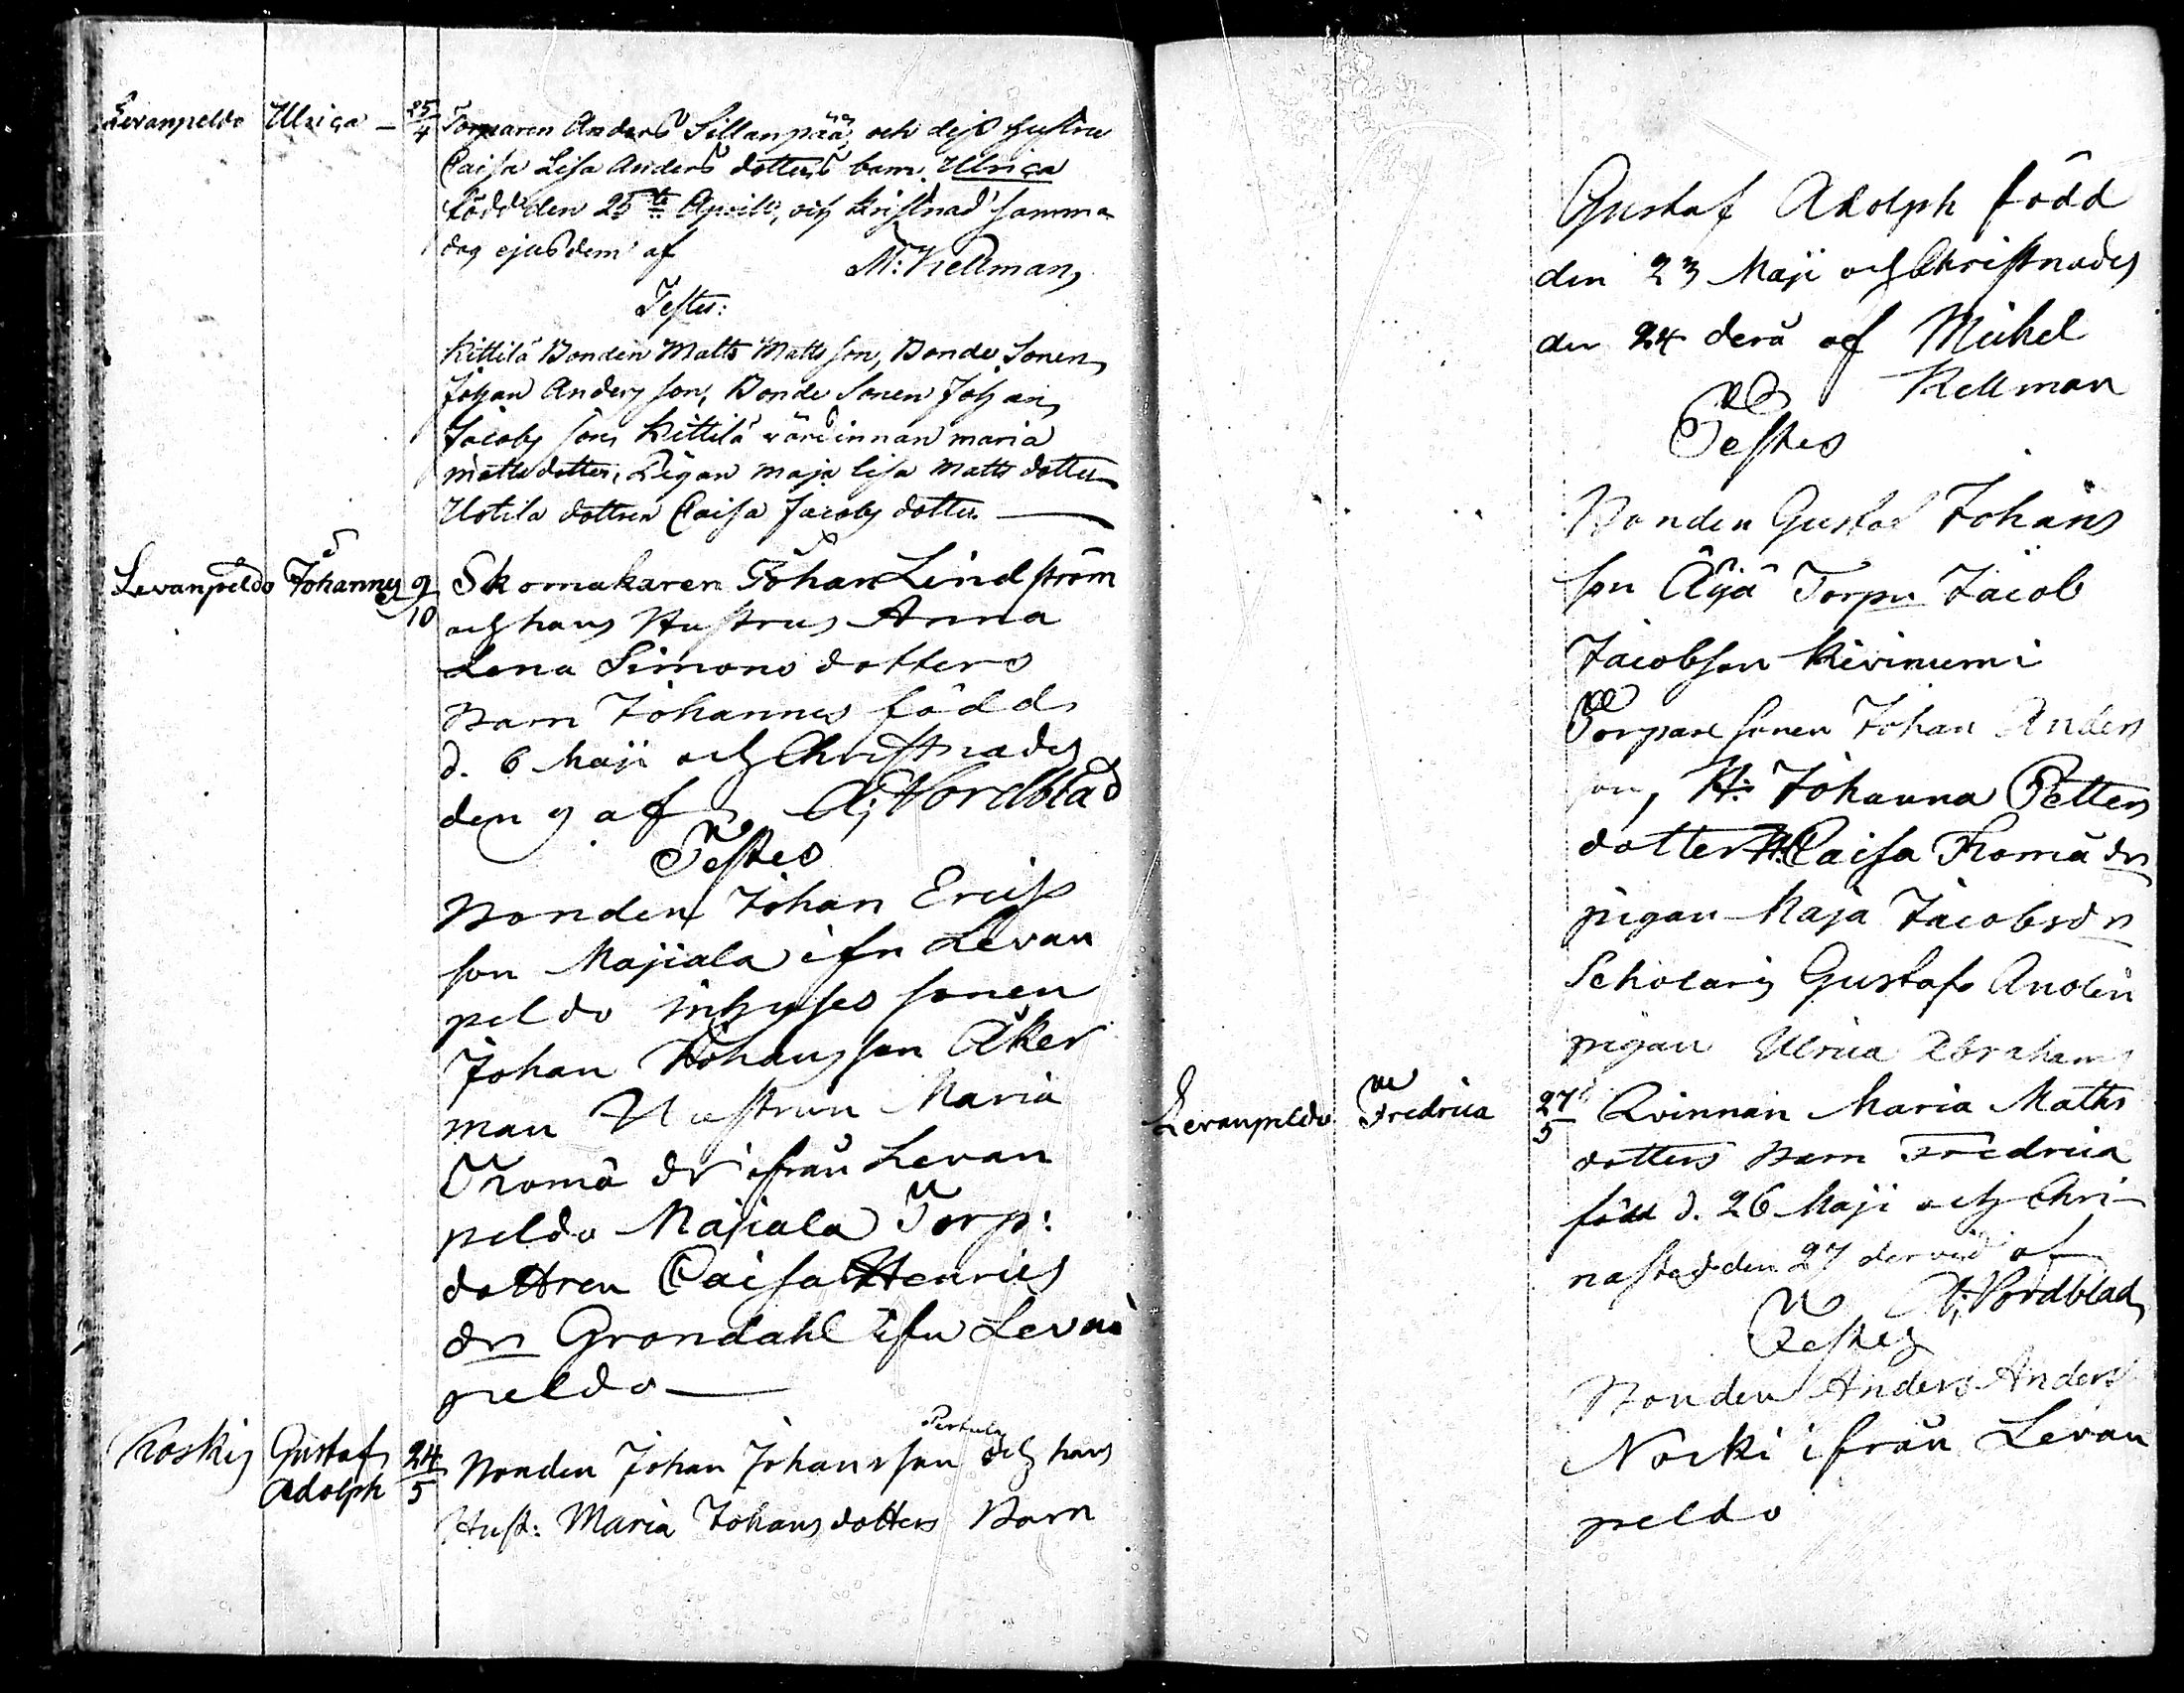 Levanpeldo Ulrica – 25/4 Torparen Anders Sillanpää och dess hustru
Caisa Lisa Anders dotters barn Ulrica
född den 25te Aprill, och kristnad samma
dag ejusdem af M: Kellman,
Testes:
Kittilä Bonden Matts Matts son, Bonde Sonen
Johan Anders son, Bonde Sonen Johan
Jacobs son, Kittilä värdinnan maria
matts dotter, Pigan maja lisa matts dotter
Uotila dottren Caisa Jacobs dotter
Levanpeldo Johannes 9/10 Skomakaren Johan Lindström
och hans Hustrus Anna
Lena Simons dotters
Barn Johannes född
d. 6 Maji och Christnades
den 9 af A: Nordblad
Testes
Bonden Johan Erics
son Majiala ifn Levan
peldo inhyses sonen
Johan Johansson Åker
man Hustrun Maria
Thomä dr ifrån Levan
peldo Majiala Torp:
dottren Caisa Henrics
dr Grondahl ifn Levan
peldo
Koskis Gustaf Adolph 24/5 Bonden Johan Johansson Pertula och hans
Hust: Maria Johans dotters Barn
Gustaf Adolph född
den 23 Maji och Christnades
den 24 derå af Michel
Kellman
Testes
Bonden Gustaf Johans
son Äijä Torpn Jacob
Jacobson Kiviniemi
Torpare sonen Johan Anders
son, H: Johanna Petters
dotter H: Caisa Thomä dr
pigan Maja Jacobs dr
Scholaris Gustaf Andelin
pigan Ulrica Abrahams
Levanpeldo Fredrica 27/5 Qvinnan Maria Matts
dotters Barn Fredrica
född d. 26 Maji och Chri
nastes den 27 dervid af
A: Nordblad
Testes
Bonden Anders Anders
Nocki ifrån Levan
peldo